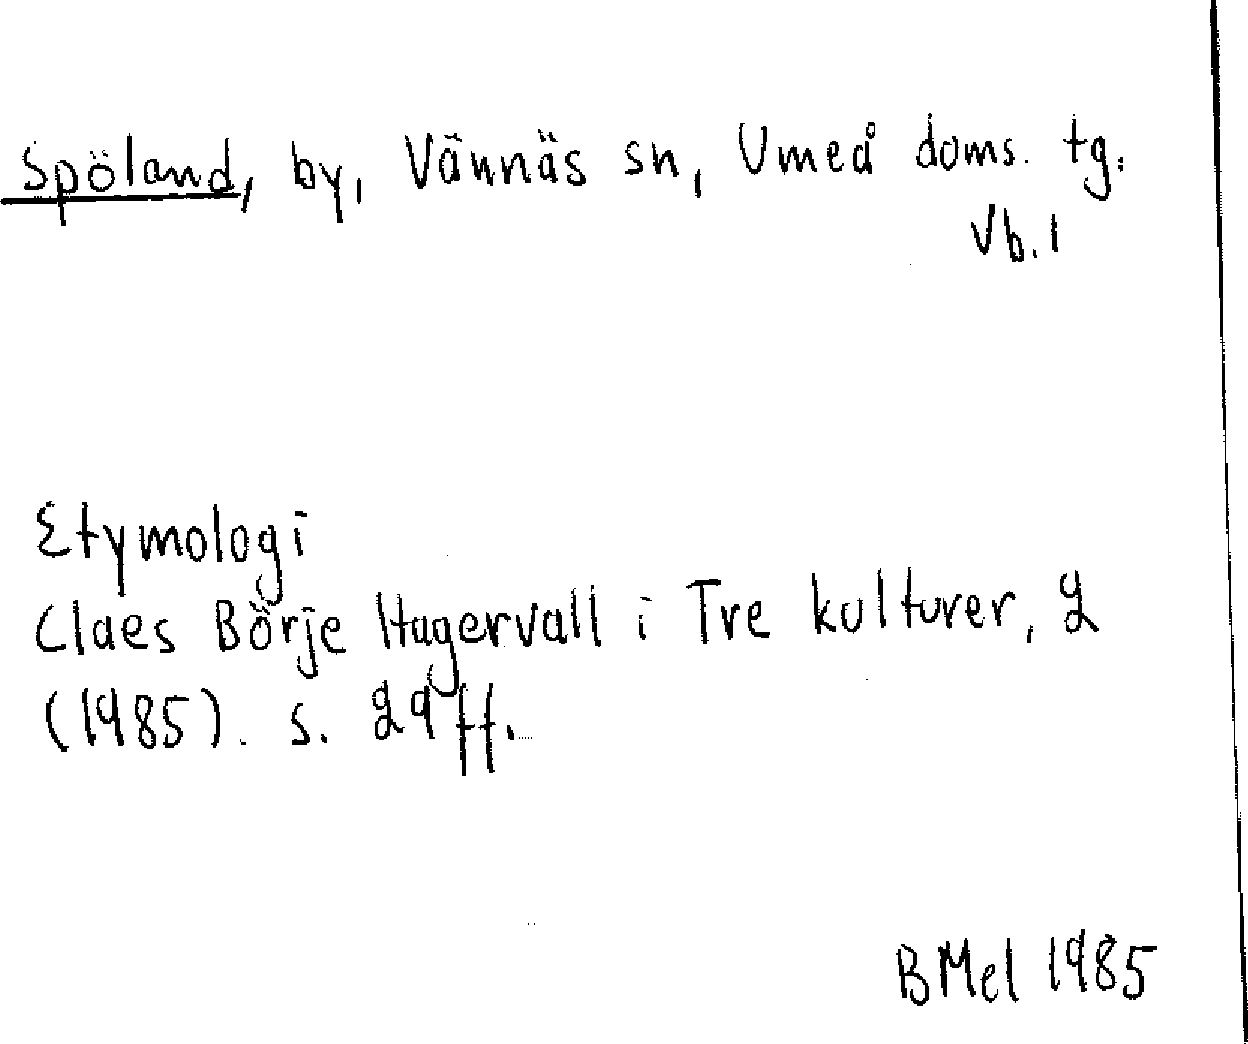 Spöland, by, Vännäs sn, Umeå doms. tg.
Vb. l
Etymologi
Claes Börje Hagervall i Tre kulturer, 2
(1985). s. 29 ff.
BMel 1985